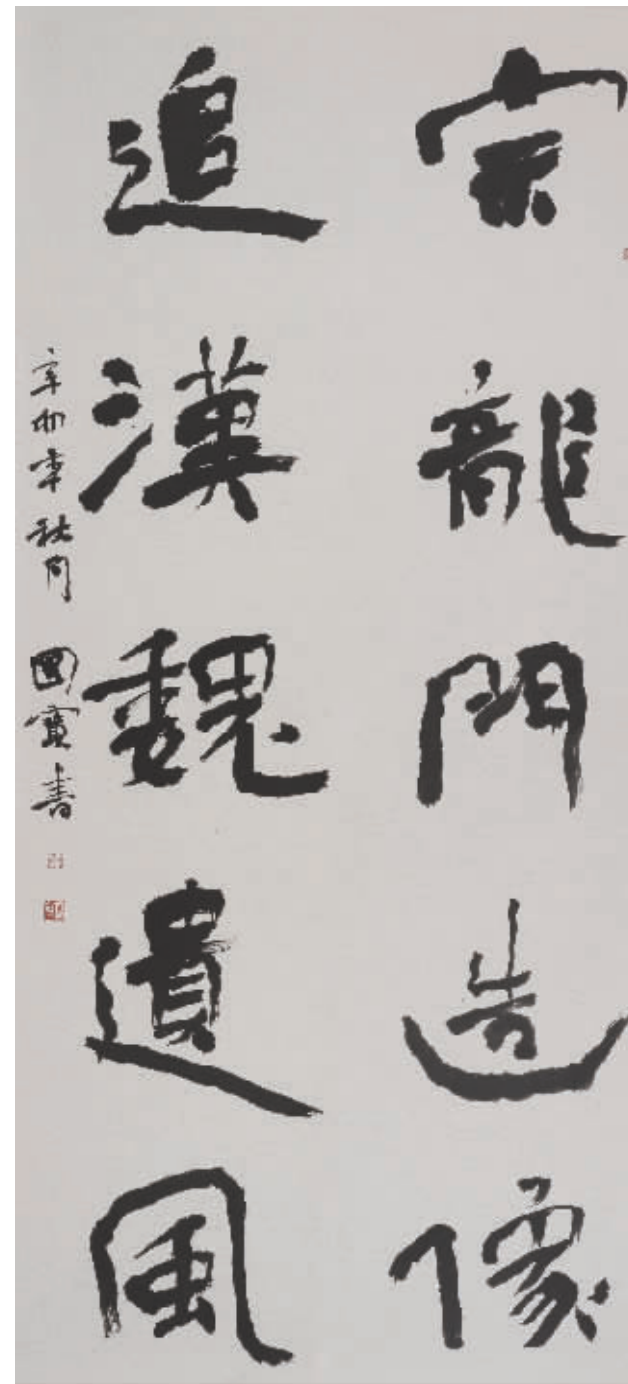 宗龍門造像
追漢魏遺風
辛卯年秋月 國寶書